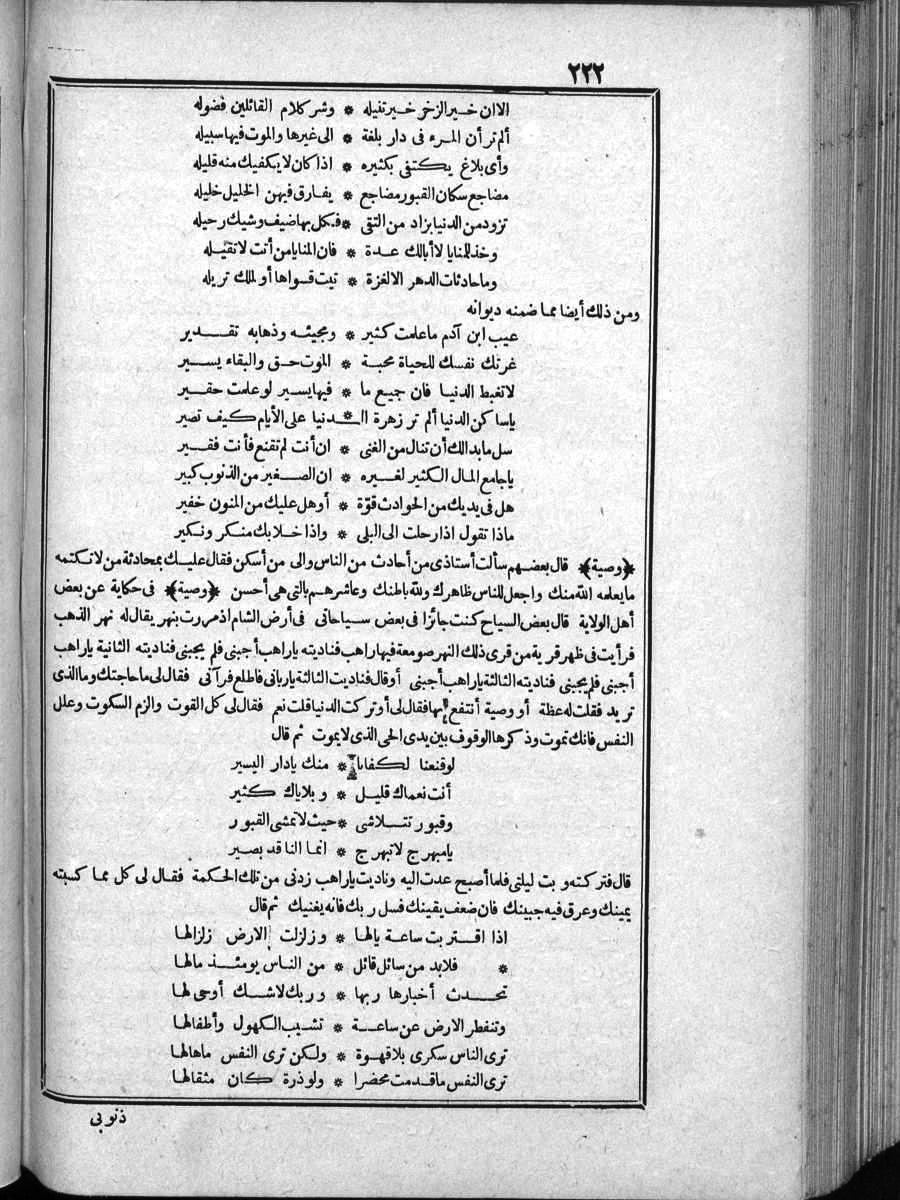 ٢٢٢
الاان خير الزخر خير تنيله * وشر كلام القائلين فضوله
ألم تر أن المرء فى دار بلغة * الى غيرها والموت فيها سبيله
وأى بلاغ يكتفى بكثيره * اذا كان لا يكفيك منه قليله
مضاجع سكان القبور مضاجع * يفارق فيهن الخليل خليله
تزود من الدنيا بزاد من التقى * فكل بها ضيف وشيك رحيله
وخذ للمنايا لا أبالك عدة * فان المنايا من أتت لا تقيله
وما حادثات الدهر الا لغزة * تبت قواها أو لملك تزيله
ومن ذلك أيضا مما ضمنه ديوانه
عيب ابن آدم ما علمت كثير * ومجيئه وذهابه تقدير
غرتك نفسك للحياة محبة * الموت حق والبقاء يسير
لا تغبط الدنيا فان جميع ما * فيها يسير لو علمت حقير
يا ساكن الدنيا ألم تر زهرة الـ * ـدنيا على الأيام كيف تصير
سل ما بدالك أن تنال من الغنى * ان أنت لم تقنع فأنت فقير
يا جامع المال الكثير لغيره * ان الصغير من الذنوب كبير
هل فى يديك من الحوادث قوّة * أو هل عليك من المنون خفير
ماذا تقول اذا رحلت الى البلى * واذا خلا بك منكر ونكير
﴿وصية﴾ قال بعضهم سألت أستاذى من أحادث من الناس والى من أسكن فقال عليك بمحادثة من لا تكتمه
ما يعلمه الله منك واجعل للناس ظاهرك ولله باطنك وعاشرهم بالتى هى أحسن ﴿وصية﴾ فى حكاية عن بعض
أهل الولاية قال بعض السياح كنت جائزا فى بعض سياحاتى فى أرض الشام اذ مررت بنهر يقال له نهر الذهب
فرأيت فى ظهر قرية من قرى ذلك النهر صومعة فيها راهب فناديته يا راهب أجبنى فلم يجبنى فناديته الثانية يا راهب
أجبنى فلم يجبنى فناديته الثالثة يا راهب أجبنى أو قال فناديت الثالثة يا ربانى فاطلع فرآنى فقال لى ما حاجتك وما الذى
تريد فقلت له عظة أو وصية أنتفع بها فقال لى أو تركت الدنيا قلت نعم فقال لى كل القوت والزم السكوت وعلل
النفس فانك تموت وذكرها الوقوف بين يدى الحى الذى لا يموت ثم قال
لو قنعنا لكفانا * منك يا دار اليسير
أنت نعماك قليل * وبلاياك كثير
وقبور تتلاشى * حيث لا تمشى القبور
يا مبهرج لا تبهرج * انما الناقد بصير
قال فتركته وبت ليلتى فلما أصبح عدت اليه وناديت يا راهب زدنى من تلك الحكمة فقال لى كل مما كسبته
يمينك وعرق فيه جبينك فان ضعف يقينك فسل ربك فانه يغنيك ثم قال
اذا اقتربت ساعة يالها * وزلزلت الارض زلزالها
* فلابد من سائل قائل * من الناس يومئذ مالها
تحدث أخبارها ربها * وربك لا شك أوحى لها
وتنفطر الارض عن ساعة * تشيب الكهول وأطفالها
ترى الناس سكرى بلا قهوة * ولكن ترى النفس ما هالها
ترى النفس ما قدمت محضرا * ولو ذرة كان مثقالها
ذنوبى